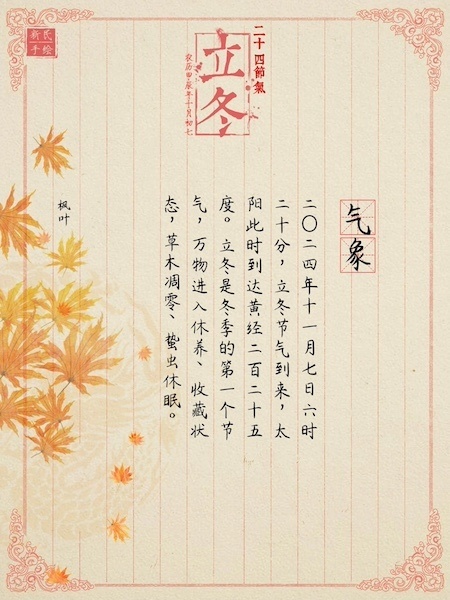 新民
手绘
二十四節氣
立冬
农历甲辰年十月初七
气象
二〇二四年十一月七日六时
二十分，立冬节气到来，太
阳此时到达黄经二百二十五
度。立冬是冬季的第一个节
气，万物进入休养、收藏状
态，草木凋零、蛰虫休眠。
枫叶